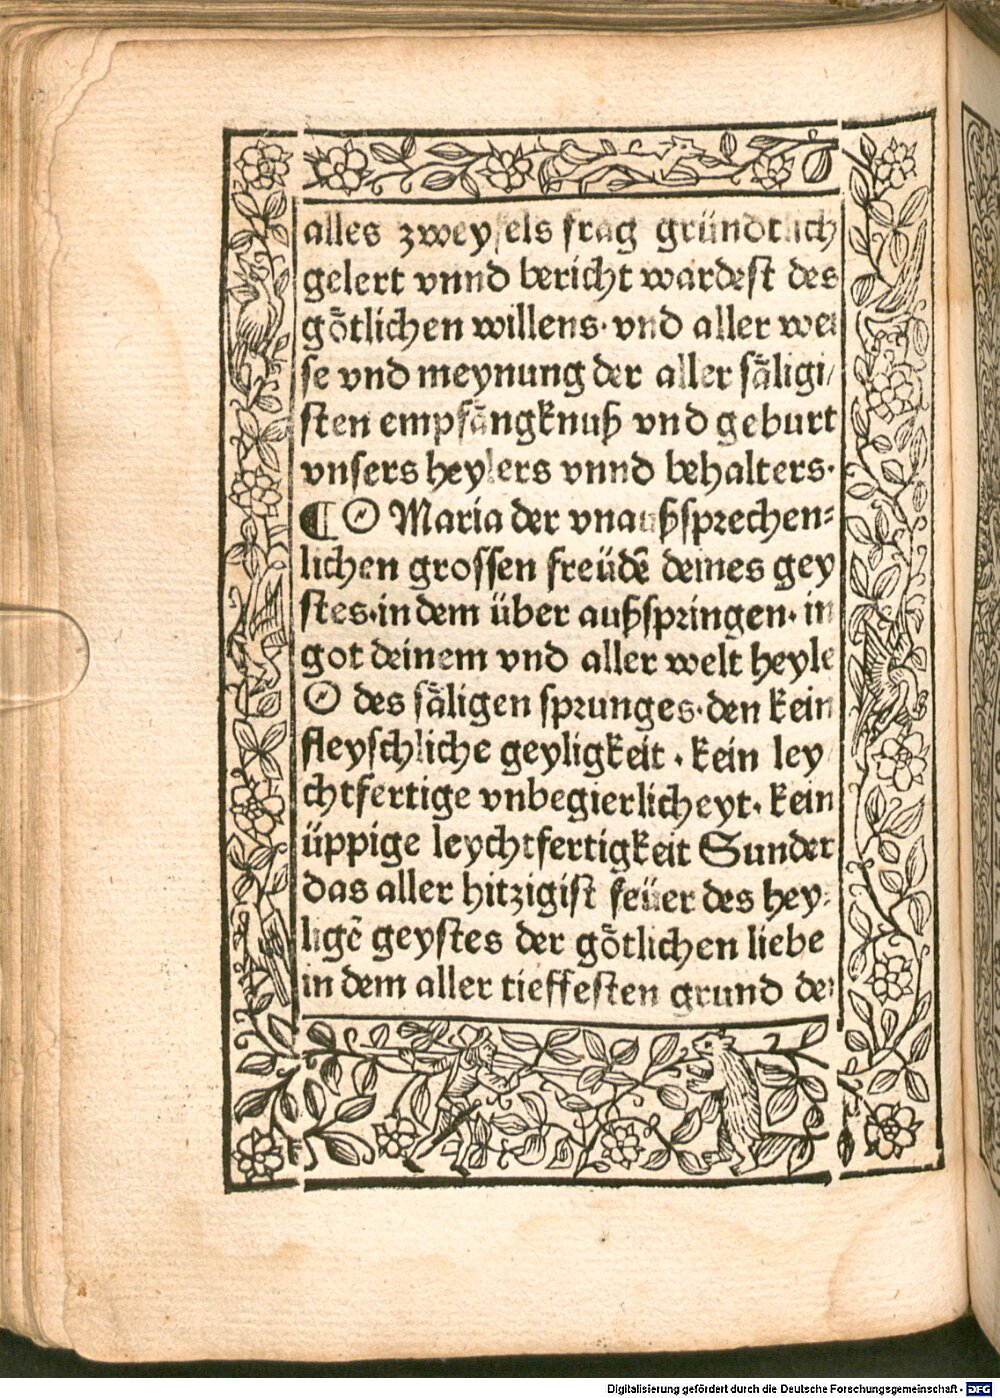 alles zweyfels frag gründtlich
gelert vnnd bericht wardest des
goͤtlichen willens· vnd aller wei
se vnd meynung der aller saͤligi/
sten empfaͤngknuß vnd geburt
vnsers heylers vnnd behalters·
¶ O Maria der vnaußsprechen=
lichen grossen freüdē deines gey
stes·in dem über außspringen· in
got deinem vnd aller welt heyle
O des saͤligen sprunges·den kein
fleyschliche geyligkeit · kein ley
chtfertige vnbegierlicheyt· kein
üppige leychtfertigkeit Sunder
das aller hitzigist feüer des hey=
ligē geystes der goͤtlichen liebe
in dem aller tieffesten grund dei
Digitalisierung gefördert durch die Deutsche Forschungsgemeinschaft - DFG